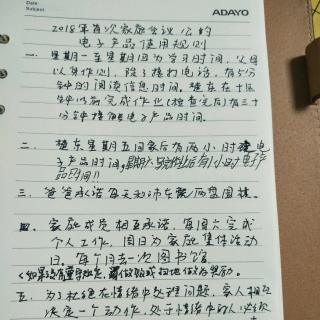 Date:
Subject:
ADAYO
2018年首次家庭会议 公约
电子产品使用规则
一、星期一至星期四为学习时间,父母
以身作则,除了接打电话,有5分
钟的阅读信息时间。楚东在十五
分钟以前完成作业(检查完后)有三十
分钟接触电子产品时间。
二、楚东星期五回家后有两小时电
子产品时间,星期六
后有1小时电子产
品时间!!
三、爸爸承诺每天和沛东玩两盘围棋。
四、家庭成员相互承诺,每周六完成
个人工作,周日为家庭集体活动
日。每个月去一次图书馆
做为奖励。
五、为了杜绝在情绪中处理问题,家人相互
决定一个动作,处于情绪中的人必须